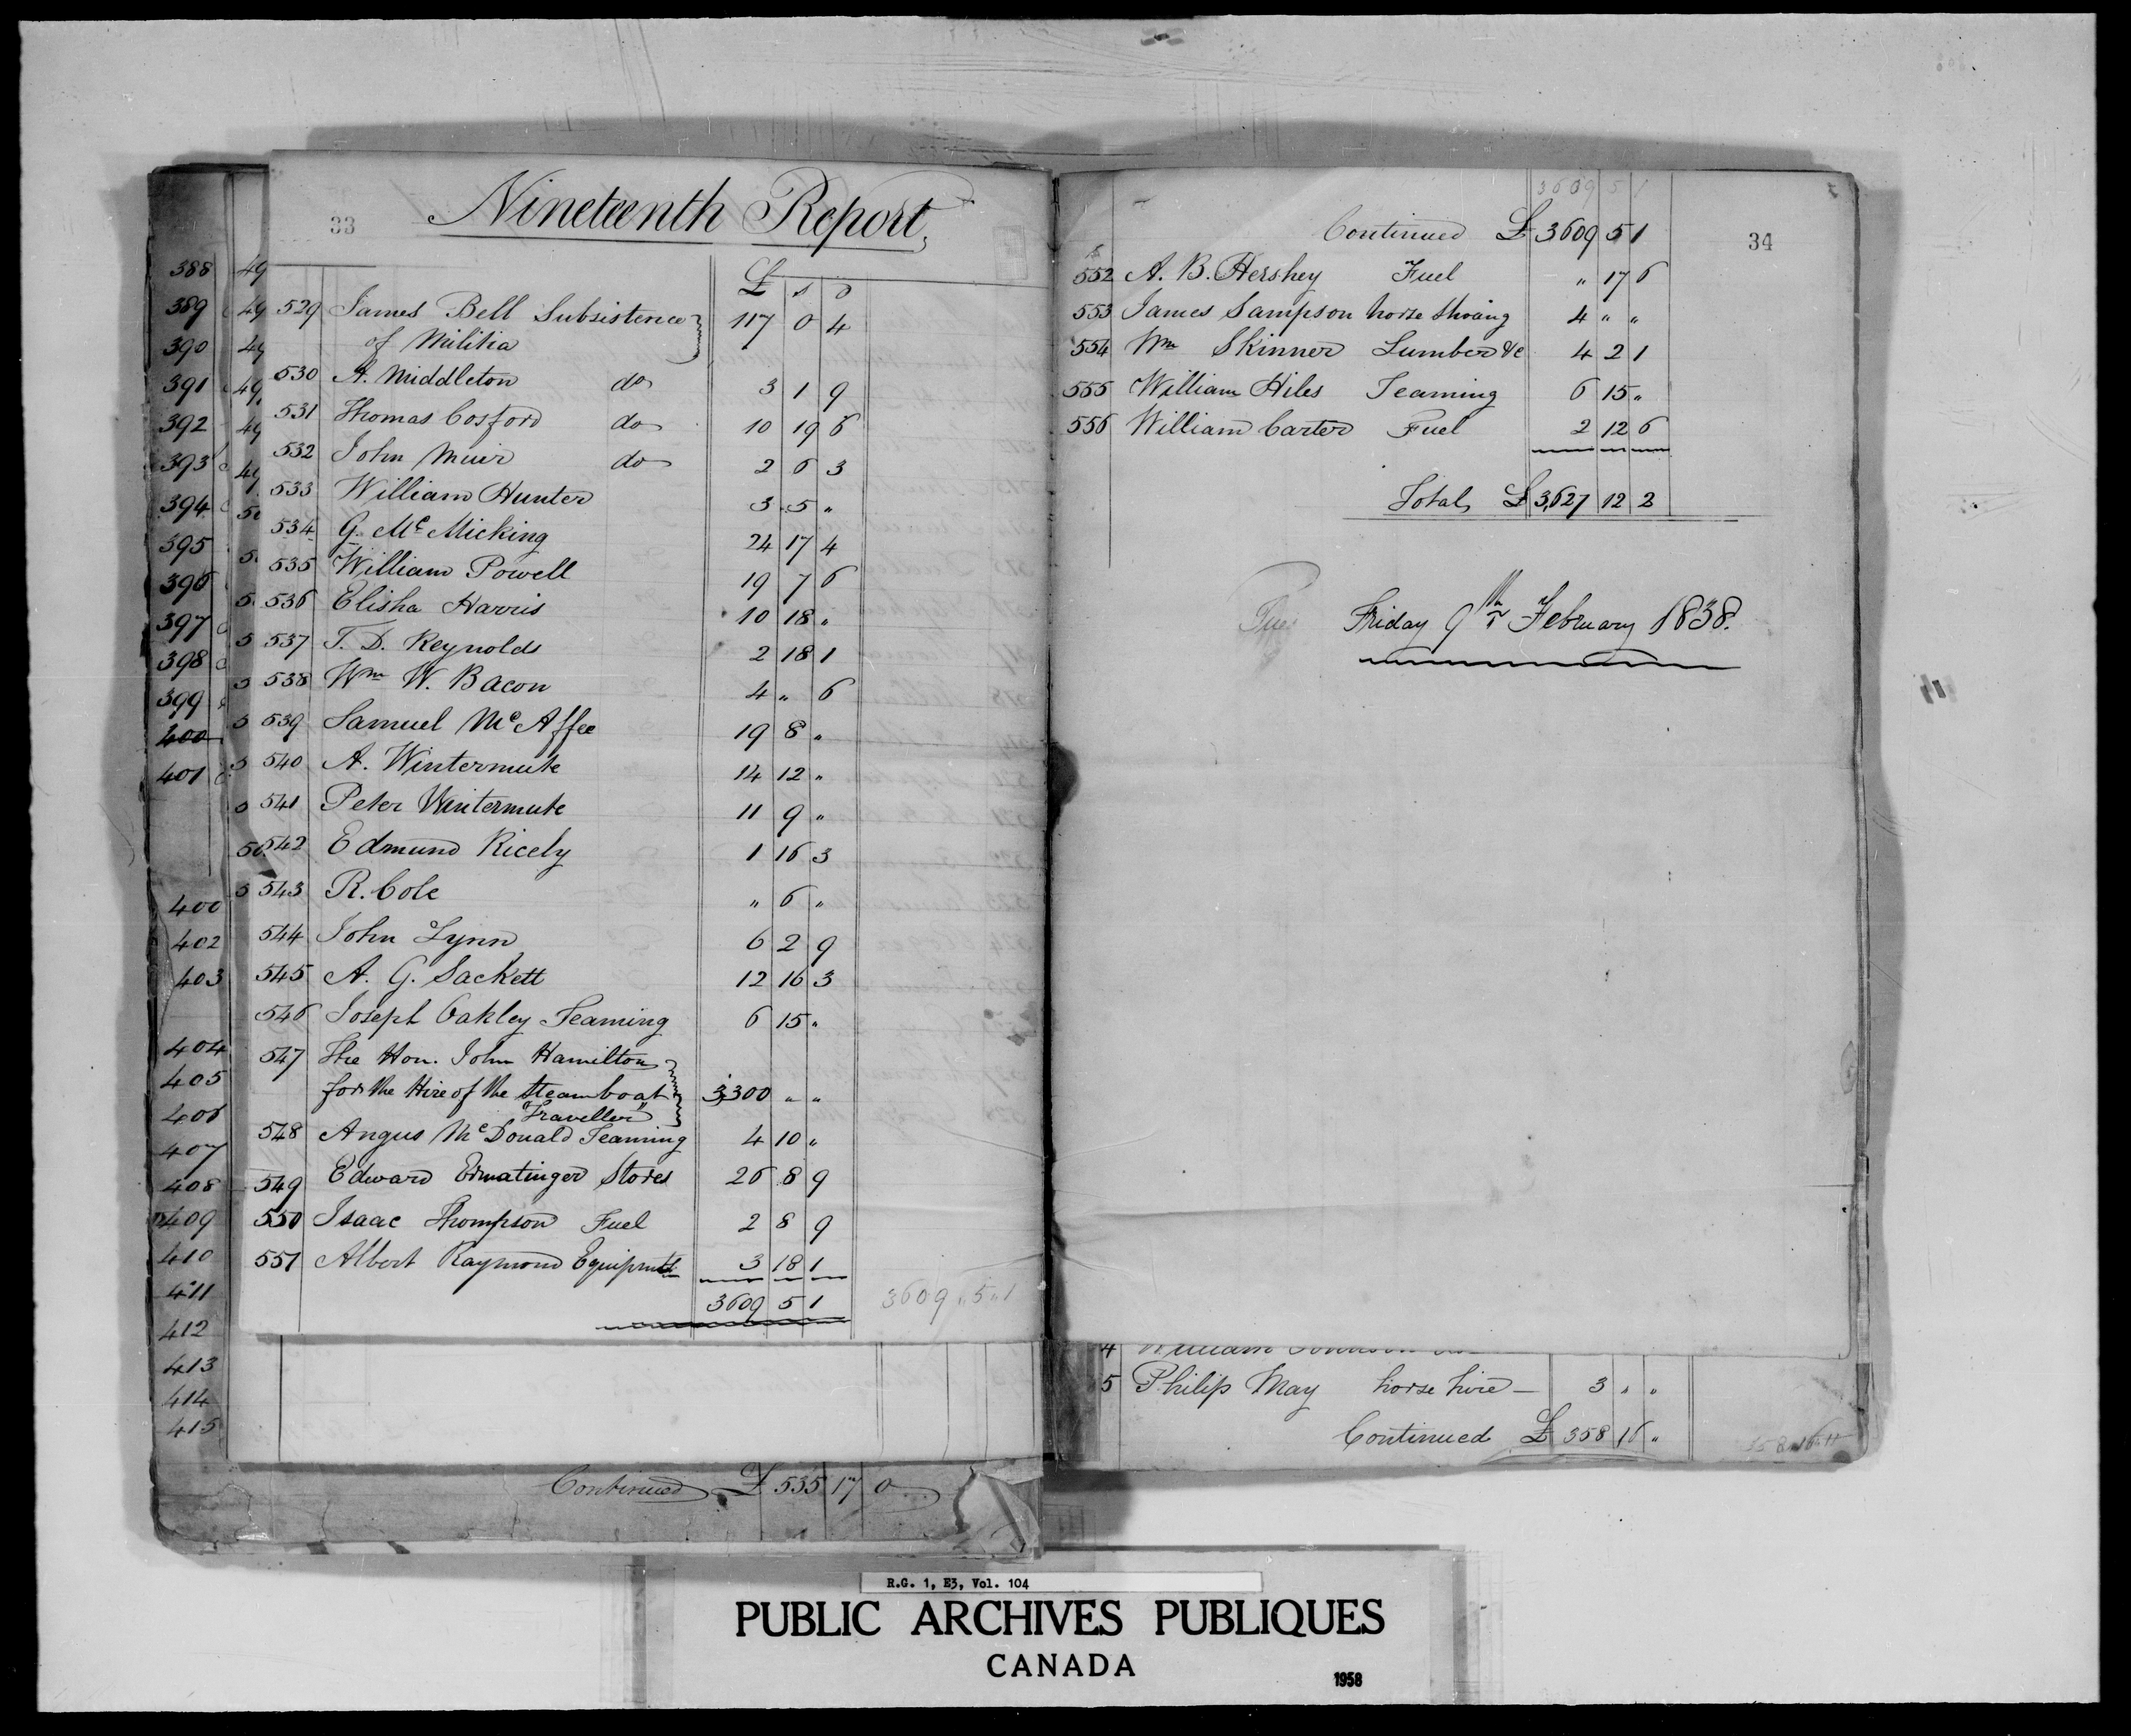 33
Nineteenth Report,
£ s D
529 James Bell Subsistence 117 0 4
of Militia
530 A. Middleton do 3 1 9
531 Thomas Cosford do 10 19 6
532 John Muir do 2 6 3
533 William Hunter 3 5 "
534 G. McMicking 24 17 4
535 William Powell 19 7 6
536 Elisha Harris 10 18 "
537 T. D. Reynolds 2 18 1
538 Wm W. Bacon 4 " 6
539 Samuel McAffee 19 8 "
540 A. Wintermute 14 12 "
541 Peter Wintermute 11 9 "
542 Edmund Ricely 1 16 3
543 R. Cole " 6 "
544 John Lynn 6 2 9
545 A. G. Sackett 12 16 3
546 Joseph Oakley Teaming 6 15 "
547 The Hon. John Hamilton
for the Hire of the Steamboat 3,300 " "
"Traveller"
548 Angus McDonald Teaming 4 10 "
549 Edward Ermatinger Stores 26 8 9
550 Isaac Thompson Fuel 2 8 9
551 Albert Raymond Equipmts 3 18 1
3609 5 1
3609 " 5 " 1
388
389
390
391
392
393
394
395
396
397
398
399
400
401
400
402
403
404
405
406
407
408
409
410
411
412
413
414
415
Continued £ 535 17 0
34
3609 5 1
Continued £ 3609 5 1
552 A. B. Hershey Fuel " 17 6
553 James Sampson horse shoing 4 " "
554 Wm Skinner Lumber &c 4 2 1
555 William Hiles Teaming 6 15 "
556 William Carter Fuel 2 12 6
Total £ 3,627 12 2
Friday 9th February 1838.
4 William
5 Philip May horse hire 3 " "
Continued £ 358 16 "
R.G. 1, E3, Vol. 104
PUBLIC ARCHIVES PUBLIQUES
CANADA
1958